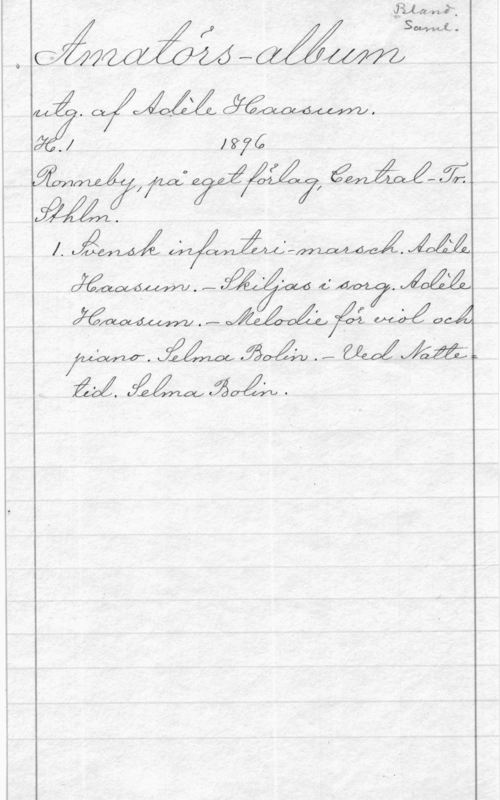 Bland.
Saml.
Amatörs-album
utg. af Adèle Haasum.
H. 1 1896
Ronneby, på eget förlag, Central-Tr.
Sthlm.
1. Svensk infanteri-marsch. Adèle
Haasum. - Skiljas i sorg. Adèle
Haasum. - Melodie för viol och
piano. Selma Bolin. - Ved Natte-
tid. Selma Bolin.